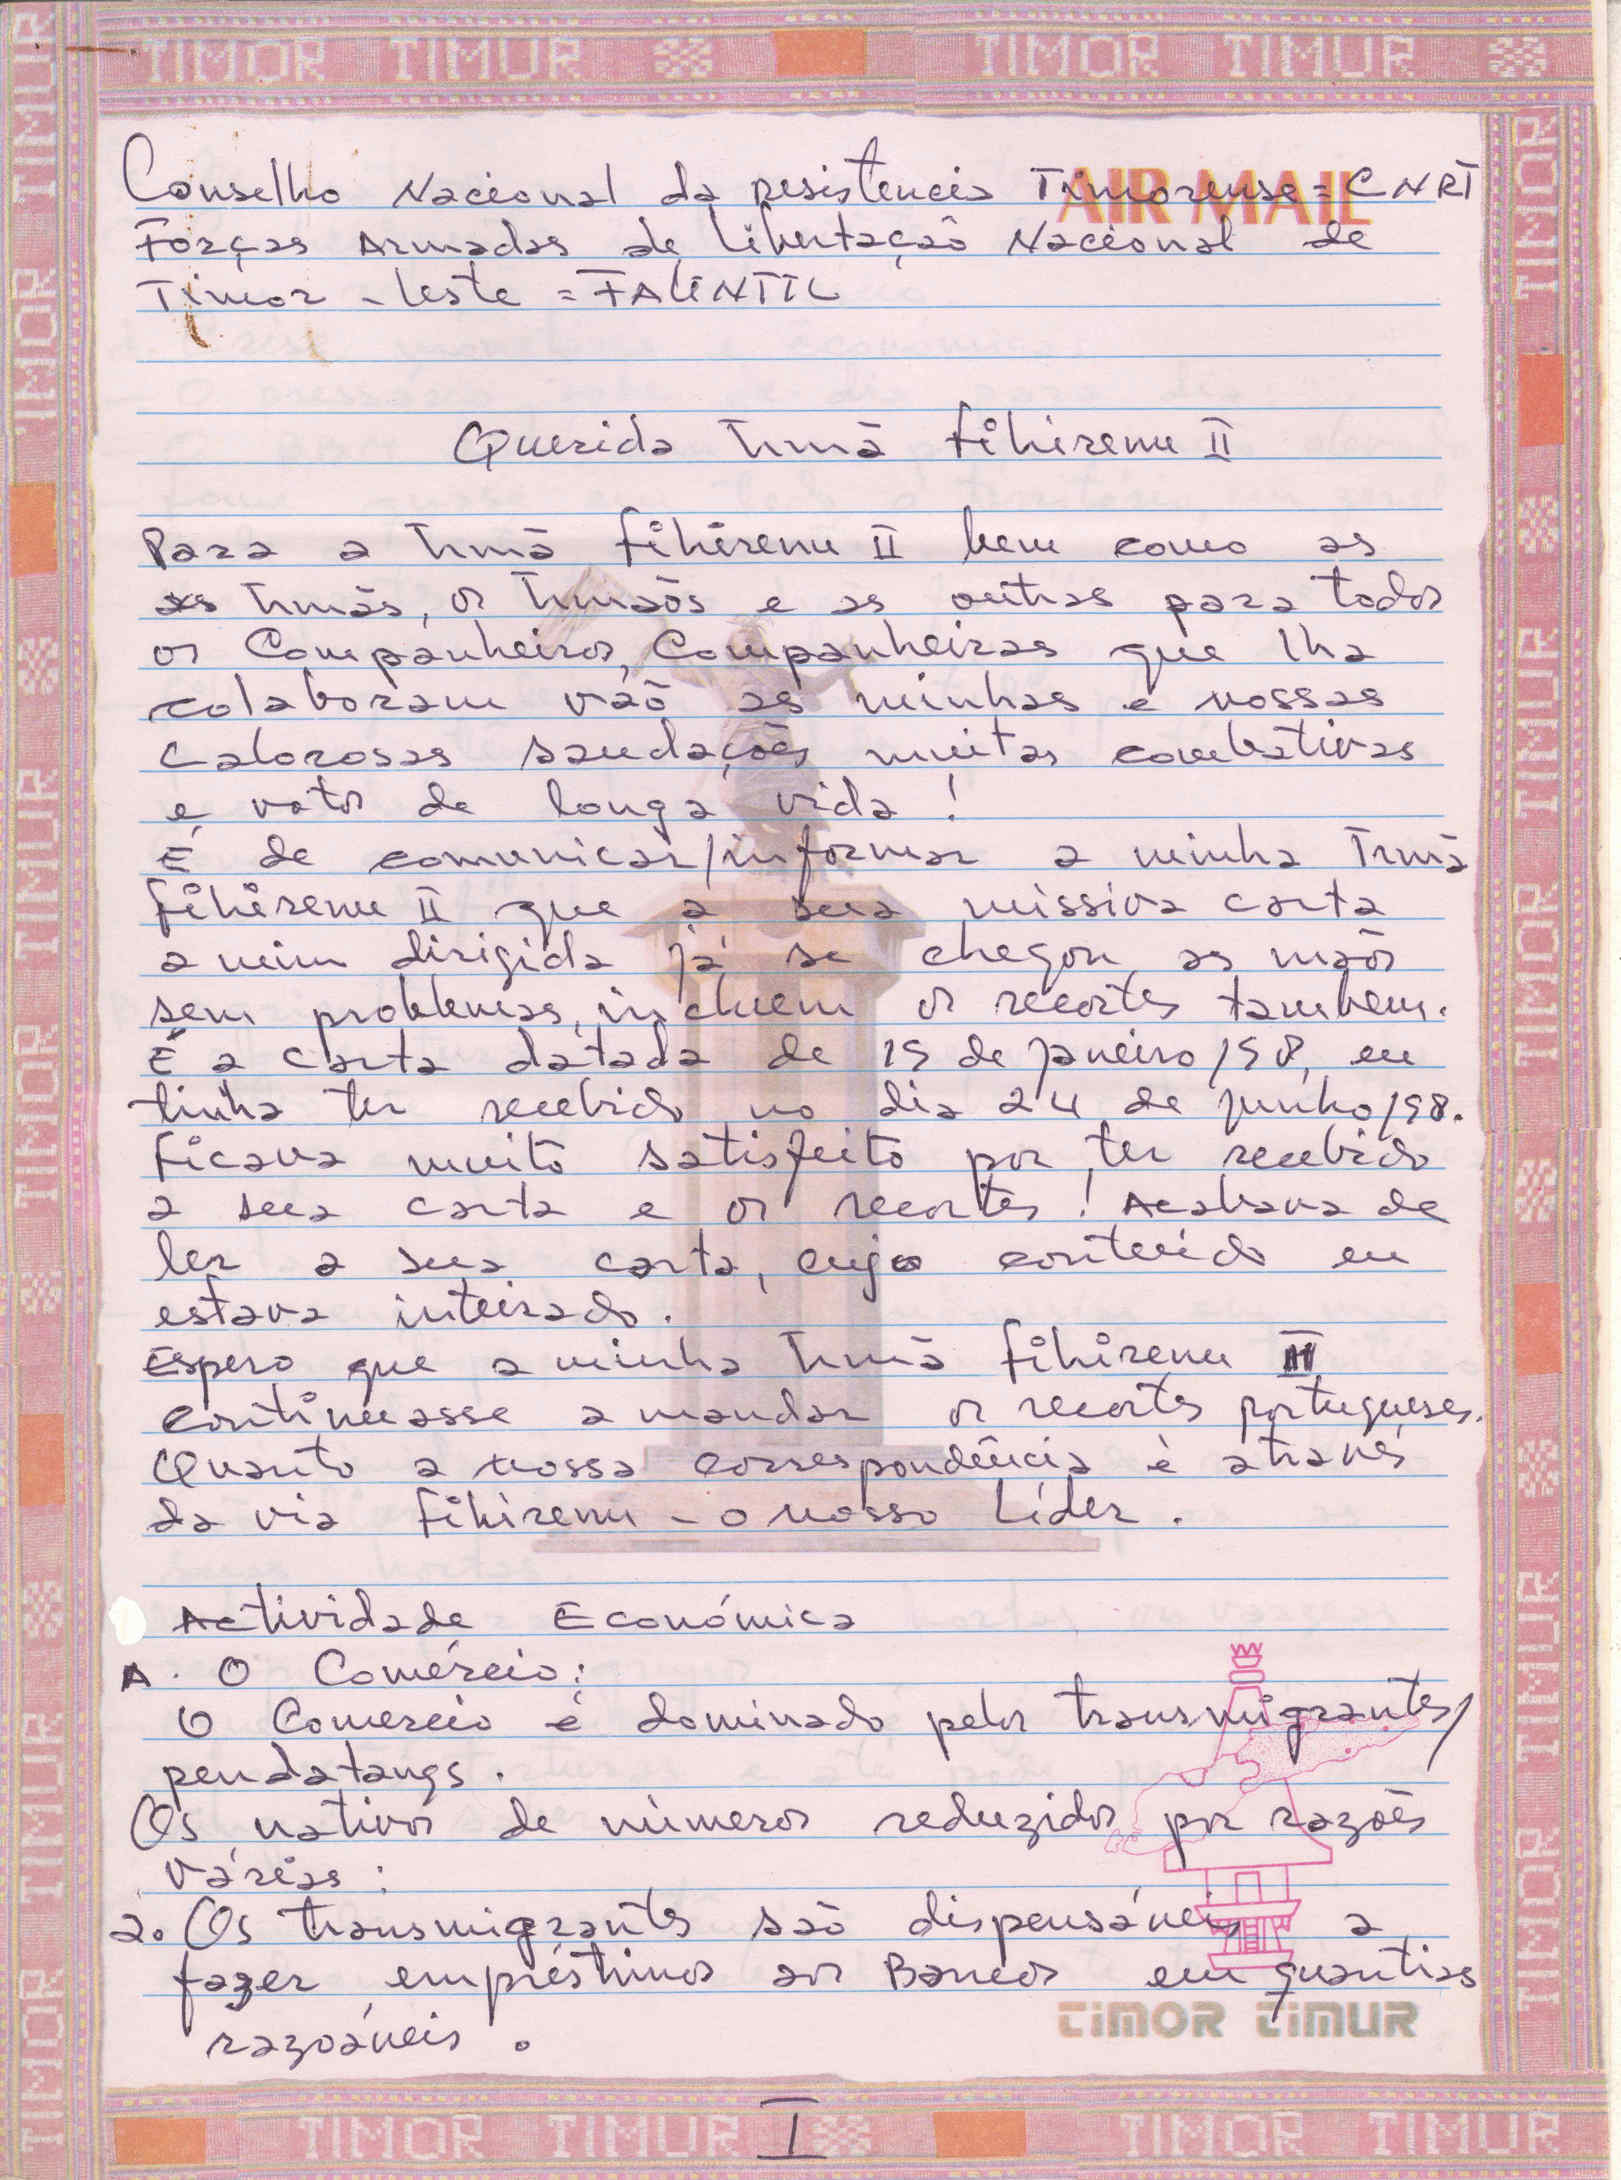 TIMOR TIMUR TIMOR TIMUR
AIR MAIL
Conselho Nacional da resistencia Timorense = CNRT
Forças Armadas de libertação Nacional de
Timor - leste = FALINTIL
Querida Irmã Fihirenu II
Para a Irmã Fihirenu II bem como as
as Irmãs, os Irmãos e as outras para todos
os Companheiros, Companheiras que lha
colaboram vão as minhas e nossas
calorosas saudações muitas combativas
e votos de longa vida !
É de comunicar/informar a minha Irmã
Fihirenu II que a sua missiva carta
a mim dirigida já se chegou as mãos
sem problemas, incluem os recortes tambem.
É a carta datada de 19 de Janeiro/98, eu
tinha ter recebido no dia 24 de Junho/98.
Ficava muito satisfeito por ter recebido
a sua carta e os recortes ! Acabava de
ler a sua carta, cujo conteúdo eu
estava inteirado.
Espero que a minha Irmã Fihirenu II
continuasse a mandar os recortes portugueses.
Quanto a nossa correspondência è através
da via Fihirenu - o nosso Líder.
Actividade Económica
A. O Comércio:
O Comercio é dominado pelos transmigrantes/
pendatangs.
Os nativos de números reduzidos por razões
várias :
a. Os transmigrantes são dispensáveis a
fazer empréstimos aos Bancos em quantias
razoáveis.
TIMOR TIMUR
I
TIMOR TIMUR TIMOR TIMUR